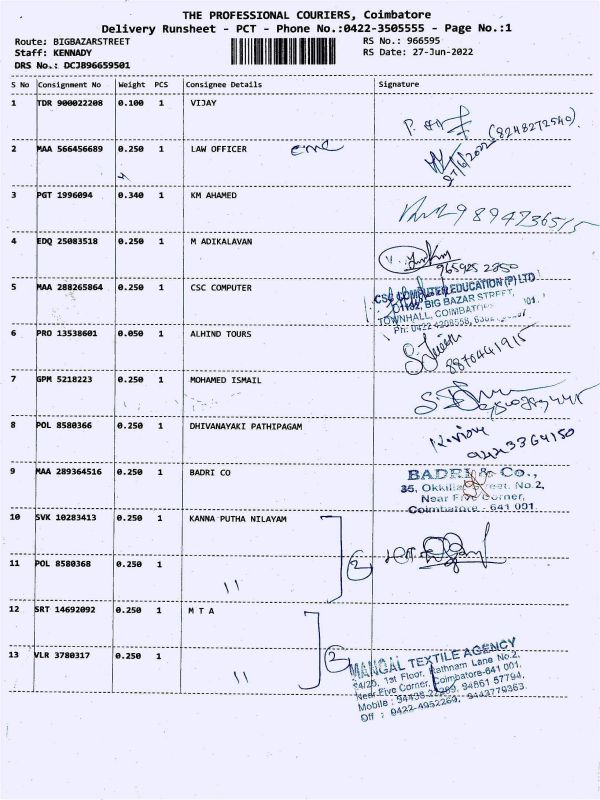 THE PROFESSIONAL COURIERS, Coimbatore
Delivery Runsheet - PCT - Phone No.:0422-3505555 - Page No.:1
Route: BIGBAZARSTREET RS No.: 966595
Staff: KENNADY RS Date: 27-Jun-2022
DRS No.: DCJ896659501
S No Consignment No Weight PCS Consignee Details Signature
1 TDR 900022208 0.100 1 VIJAY
(8248272540)
2 MAA 566456689 0.250 1 LAW OFFICER
27/6/2022
3 PGT 1996094 0.340 1 KM AHAMED
9894736515
4 EDQ 25083518 0.250 1 M ADIKALAVAN
965925 2850
5 MAA 288265864 0.250 1 CSC COMPUTER
CSC COMPUTER EDUCATION (P) LTD
BIG BAZAR STREET,
TOWNHALL, COIMBATORE
Ph: 0422 4308558,
6 PRO 13538601 0.050 1 ALHIND TOURS
8870441915
7 GPM 5218223 0.250 1 MOHAMED ISMAIL
8 POL 8580366 0.250 1 DHIVANAYAKI PATHIPAGAM
9 MAA 289364516 0.250 1 BADRI CO
BADRI & Co.,
35, Okkiliar Street, No.2,
Near Five Corner,
Coimbatore - 641 001.
10 SVK 10283413 0.250 1 KANNA PUTHA NILAYAM
11 POL 8580368 0.250 1
" 2
12 SRT 14692092 0.250 1 M T A
13 VLR 3780317 0.250 1
" 2
MANGAL TEXTILE AGENCY
54/25, 1st Floor, Rathnam Lane No.2,
Near Five Corner, Coimbatore-641 001.
Mobile : 94438 22269, 94861 57794,
Off : 0422-4952269, 9443779363.